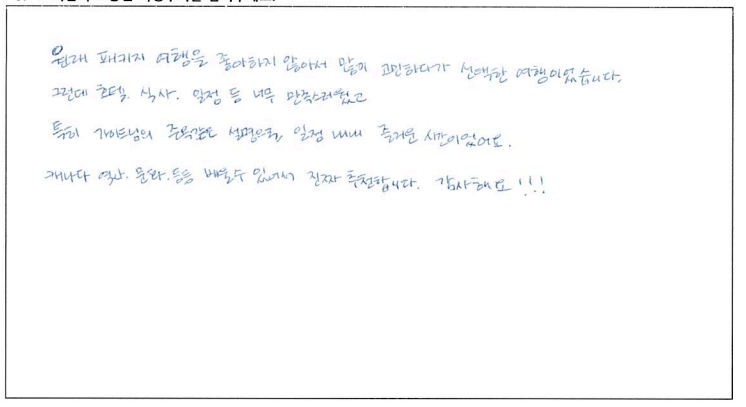 원래 패키지 여행을 좋아하지 않아서 많이 고민하다가 선택한 여행이었습니다.
그런데 호텔. 식사. 일정 등 너무 만족스러웠고
특히 가이드님의 주옥같은 설명으로 일정 내내 즐거운 시간이었어요.
캐나다 역사. 문화. 등등 배울수 있어서 진짜 추천합니다. 감사해요!!!